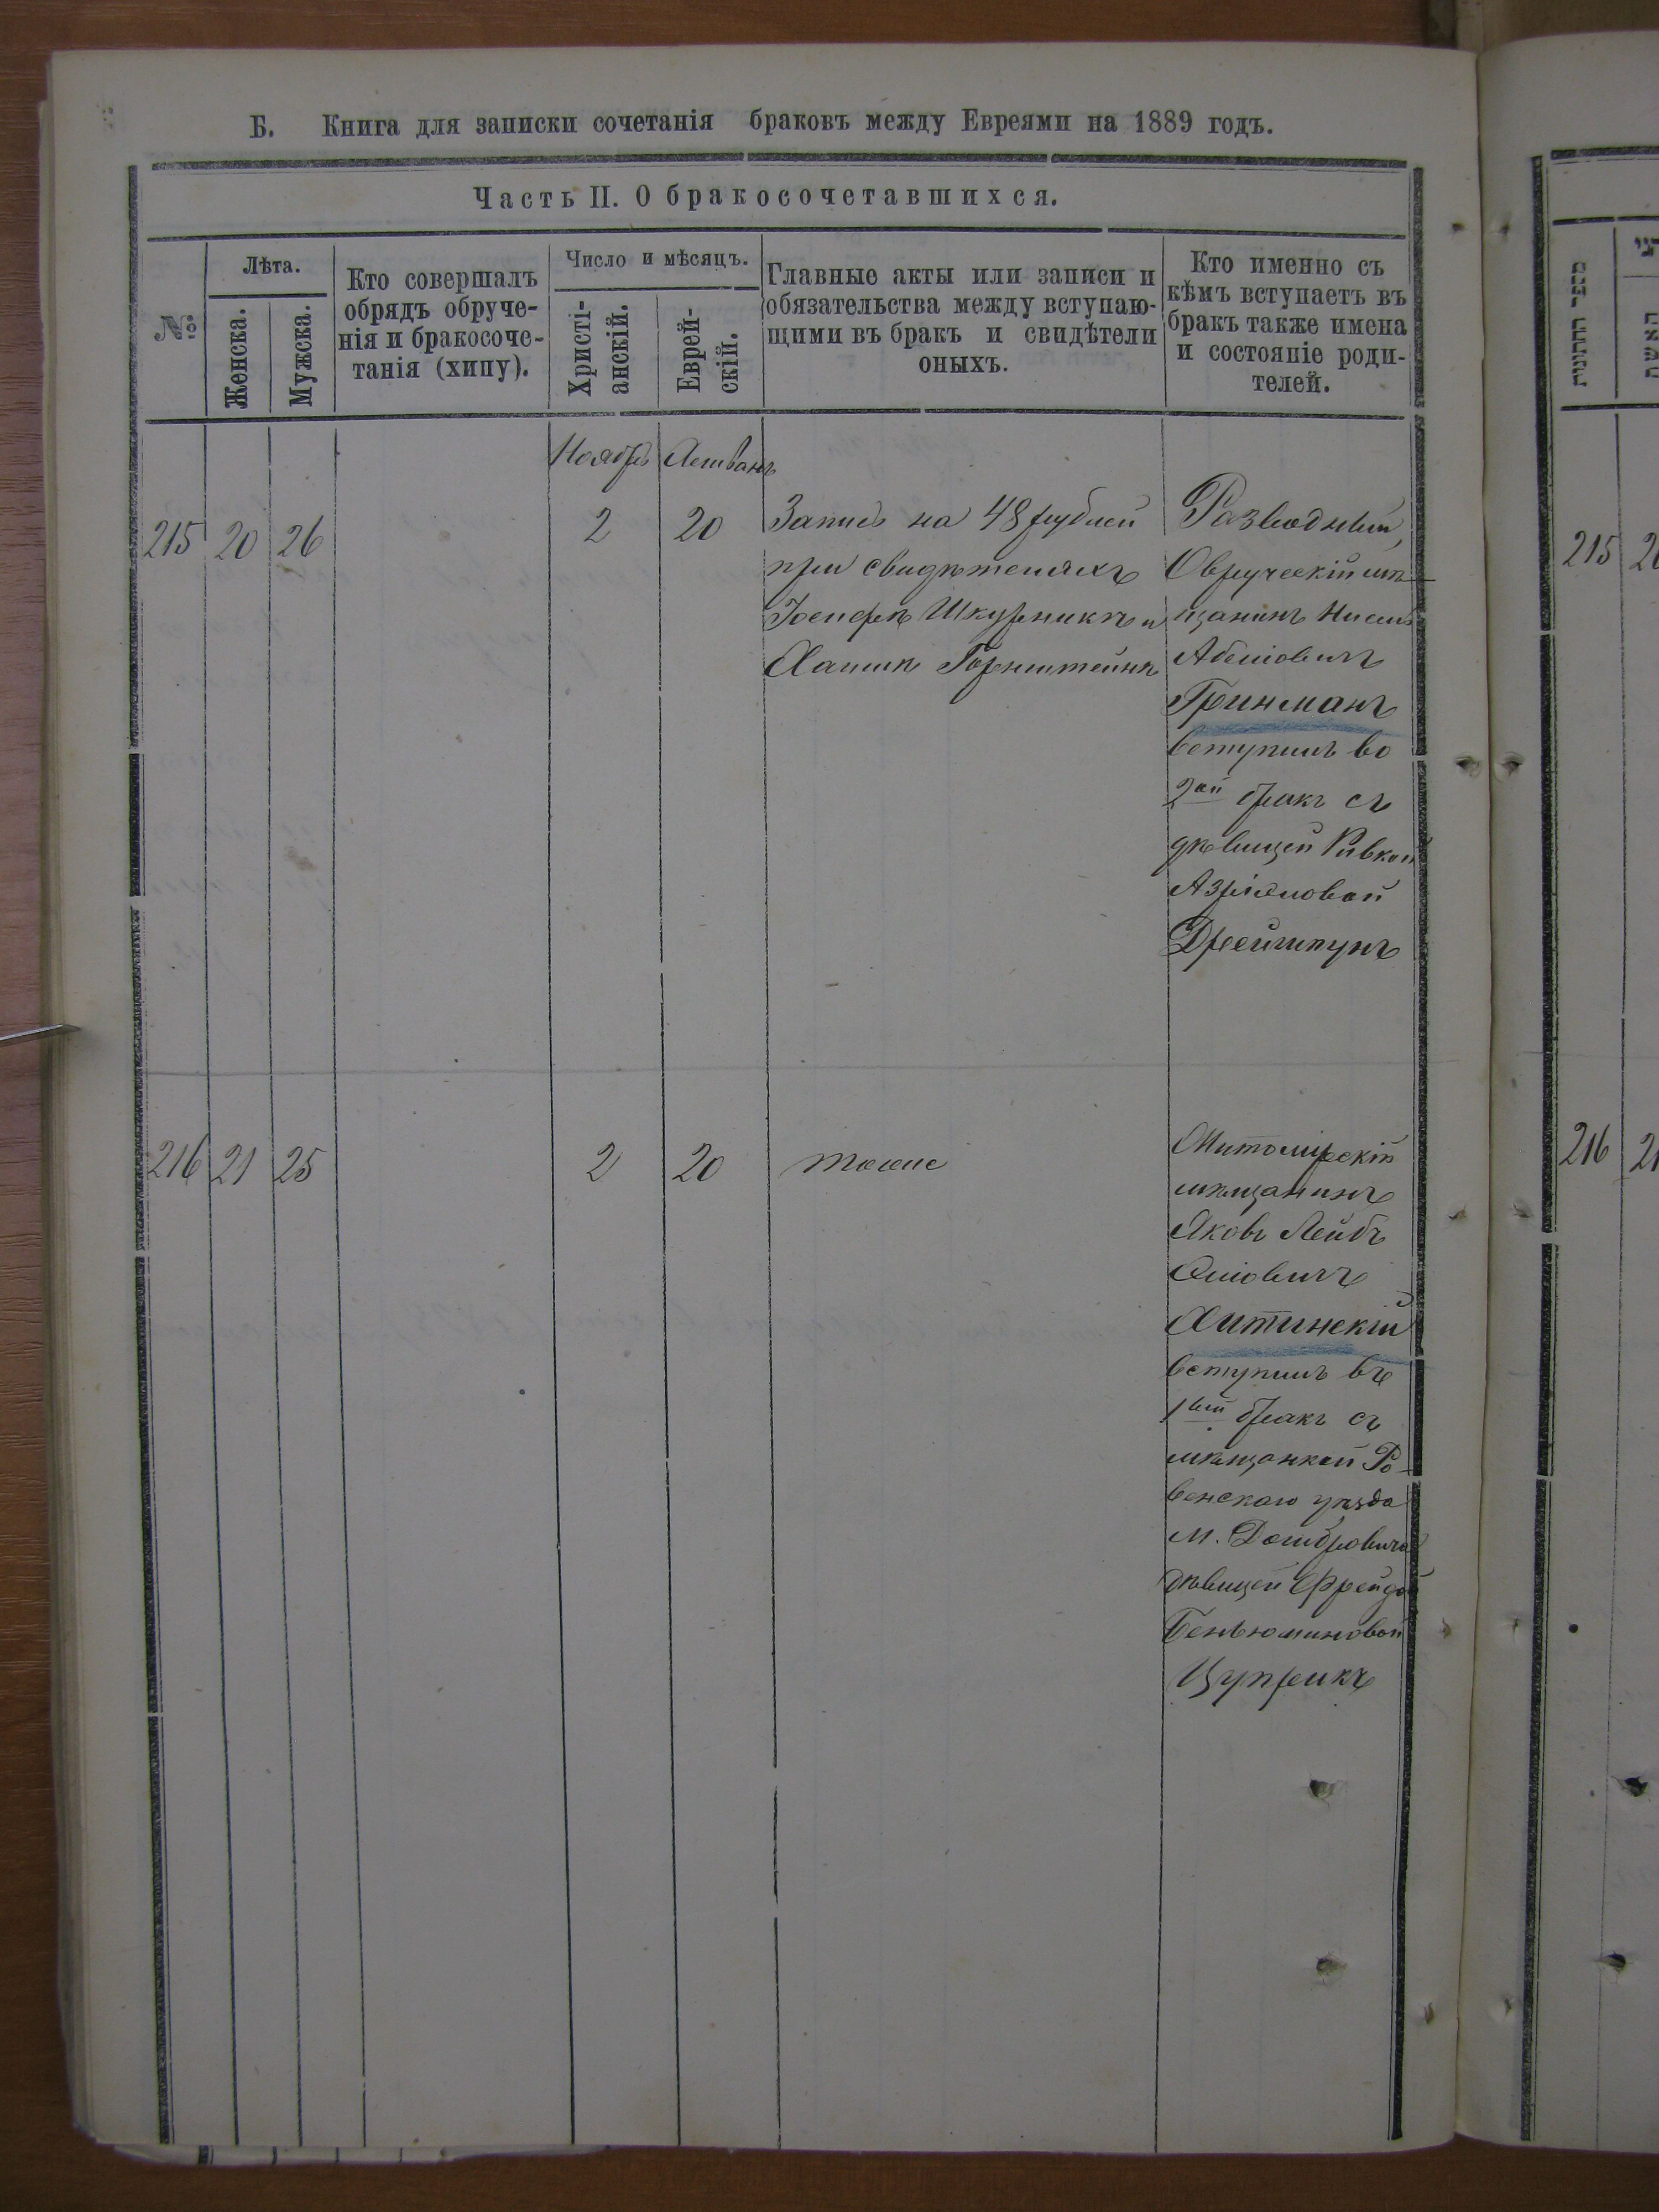 Б. Книга для записки сочетанія браковъ между Евреями на 1889 годъ.
Часть II. О бракосочетавшихся.
№
Лѣта.
Женска.
Мужска.
Кто совершалъ
обрядъ обруче-
нія и бракосоче-
танія (хипу).
Число и мѣсяцъ.
Христі-
анскій.
Еврей-
скій.
Главные акты или записи и
обязательства между вступаю-
щими въ бракъ и свидѣтели
оныхъ.
Кто именно съ
кѣмъ вступаетъ въ
бракъ также имена
и состояніе роди-
телей.
Ноябрь Хешванъ
215 20 26 2 20
Запись на 48 рублей
при свидѣтеляхъ
Іосифѣ Шкурникѣ и
Хаимѣ Горнштейнѣ
Разводный,
Овручскій мѣ-
щанинъ Нисель
Абеліовичъ
Гринманъ
вступилъ во
2ой бракъ съ
дѣвицей Ривкой
Азріиловой
Дрейшпунъ
216 21 25 2 20 тоже
Житомірскій
мѣщанинъ
Яковъ Лейбъ
Эліовичъ
Хитинскій
вступилъ въ
1вый бракъ съ
мѣщанкой Ро-
венскаго уѣзда
м. Домбровича
дѣвицей Фрейдой
Беньюминовой
Цуприкъ
מספר החתונות
האשה
215 2
216 21